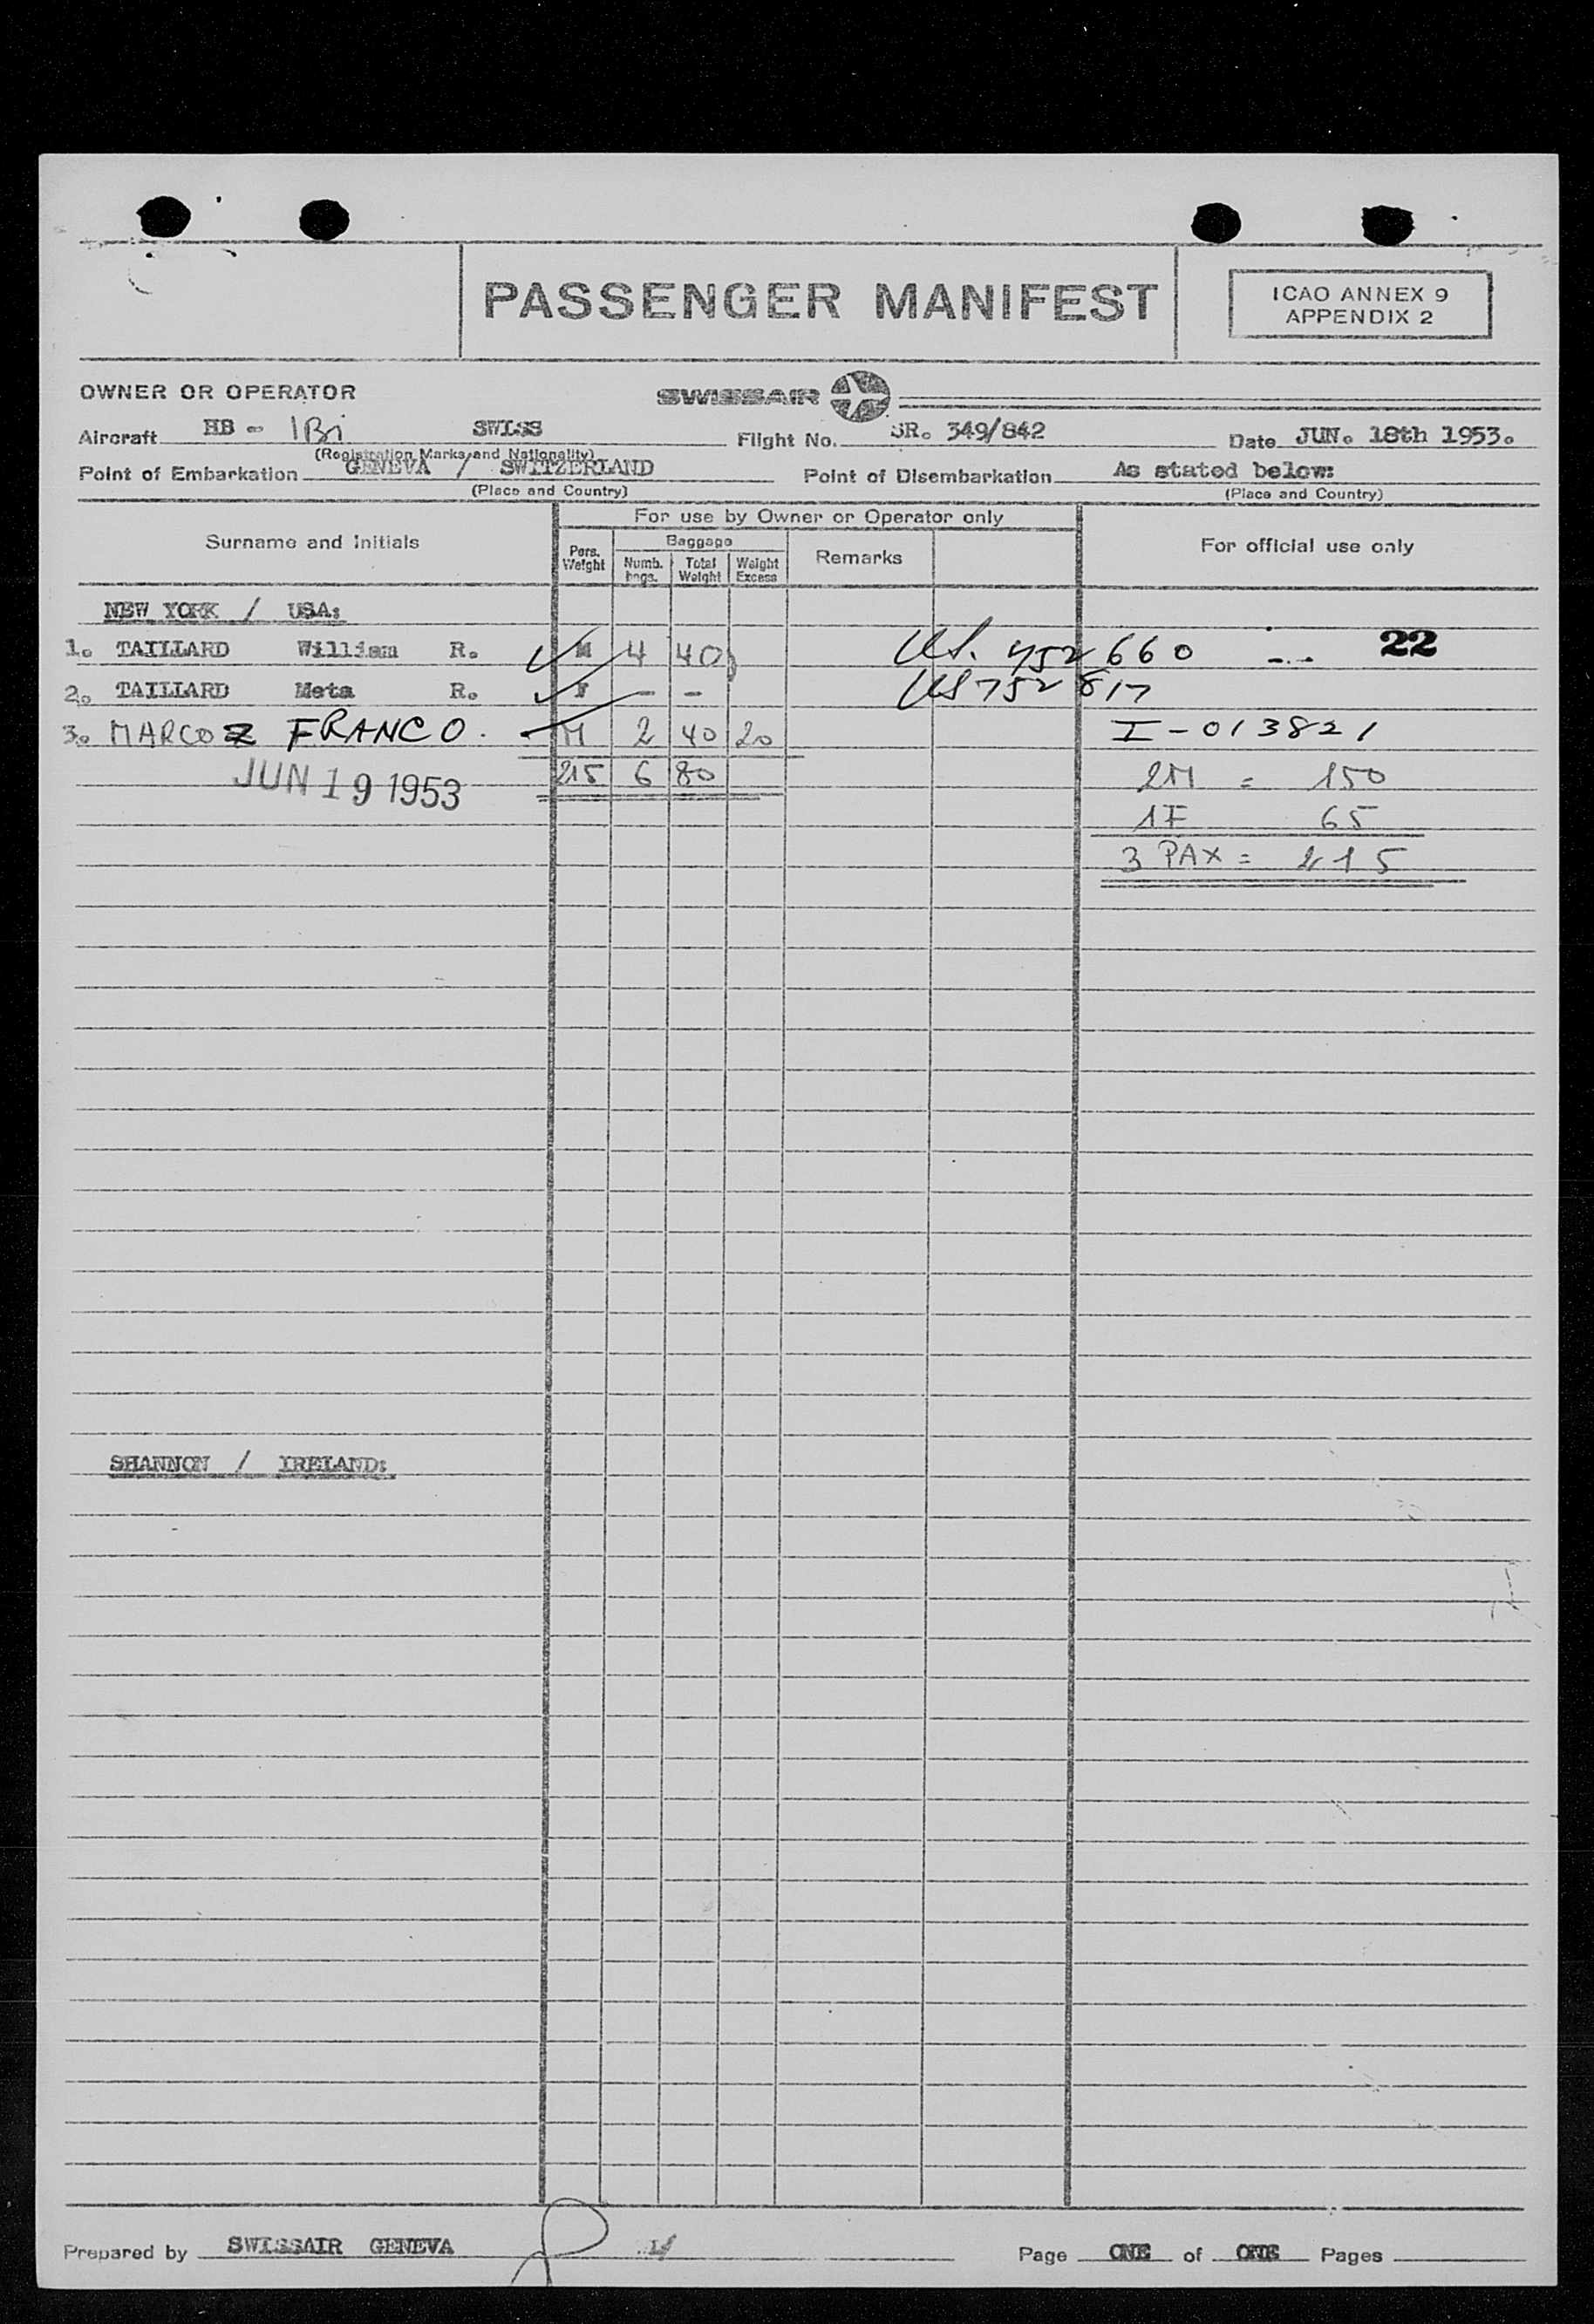 PASSENGER MANIFEST
ICAO ANNEX 9
APPENDIX 2
OWNER OR OPERATOR
SWISSAIR
Aircraft HB - IBi SWISS Flight No. SR. 349/842 Date JUN. 18th 1953.
(Registration Marks and Nationality)
Point of Embarkation GENEVA / SWITZERLAND Point of Disembarkation As stated below:
(Place and Country) (Place and Country)
Surname and Initials
For use by Owner or Operator only
Pers. Weight
Baggage
Numb. bags.
Total Weight
Weight Excess
Remarks
For official use only
NEW YORK / USA:
1. TAILLARD William R. M 4 40 US. 752660 22
2. TAILLARD Meta R. F - - US 752817
3. MARCOZ FRANCO. M 2 40 20 I-013821
JUN 19 1953 215 6 80 2M = 150
1F 65
3 PAX = 215
SHANNON / IRELAND:
Prepared by SWISSAIR GENEVA Page ONE of ONE Pages